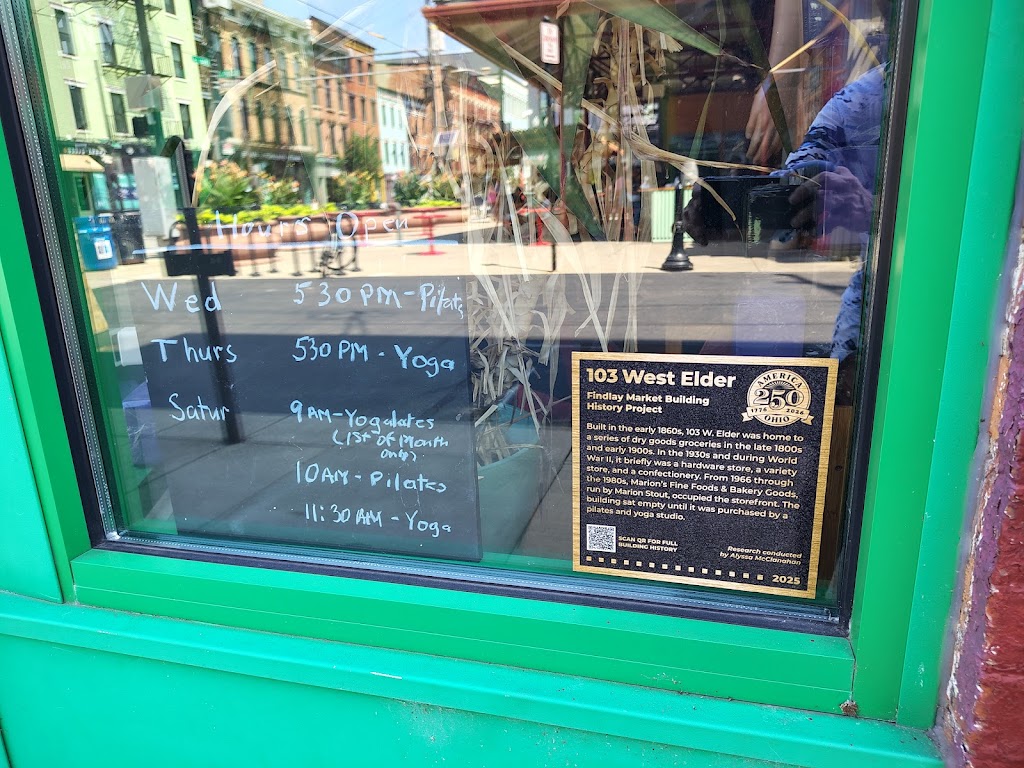 Hours Open
Wed 530 PM - Pilats
Thurs 530 PM - Yoga
Satur 9 AM - Yogalates
(1st of Month
only)
10 AM - Pilates
11:30 AM - Yoga
103 West Elder
Findlay Market Building
History Project
AMERICA
250
1776 2026
OHIO
Built in the early 1860s, 103 W. Elder was home to
a series of dry goods groceries in the late 1800s
and early 1900s. In the 1930s and during World
War II, it briefly was a hardware store, a variety
store, and a confectionery. From 1966 through
the 1980s, Marion's Fine Foods & Bakery Goods,
run by Marion Stout, occupied the storefront. The
building sat empty until it was purchased by a
pilates and yoga studio.
SCAN QR FOR FULL
BUILDING HISTORY
Research conducted
by Alyssa McClanahan
2025